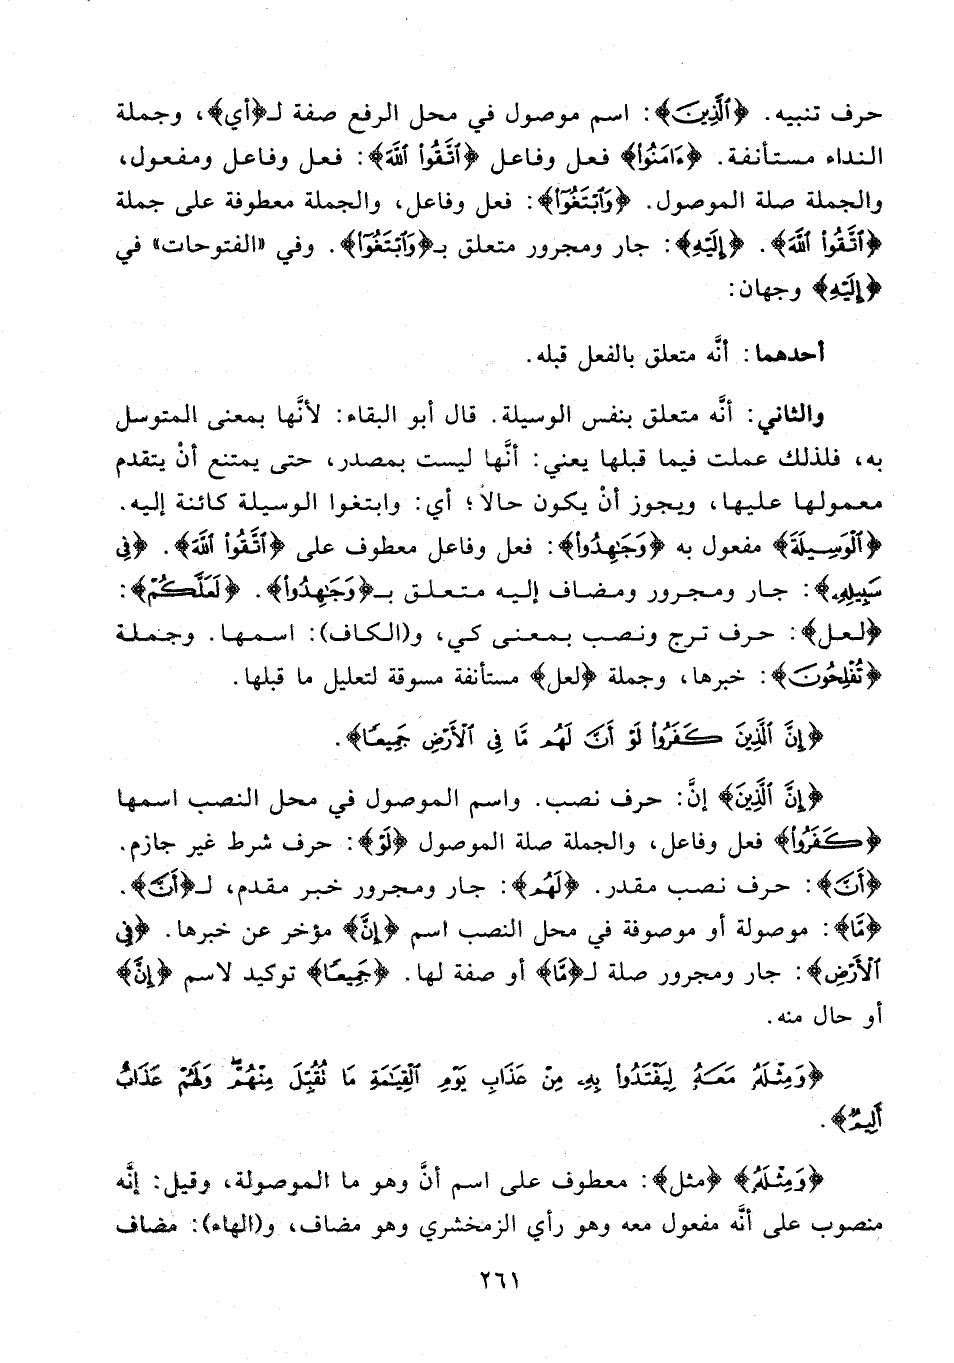 حرف تنبيه. ﴿الَّذِينَ﴾: اسم موصول في محل الرفع صفة لـ﴿أي﴾، وجملة
النداء مستأنفة. ﴿ءَامَنُوا﴾ فعل وفاعل ﴿اتَّقُوا اللَّهَ﴾: فعل وفاعل ومفعول،
والجملة صلة الموصول. ﴿وَابْتَغُوٓا﴾: فعل وفاعل، والجملة معطوفة على جملة
﴿اتَّقُوا اللَّهَ﴾. ﴿إِلَيْهِ﴾: جار ومجرور متعلق بـ﴿وَابْتَغُوٓا﴾. وفي «الفتوحات» في
﴿إِلَيْهِ﴾ وجهان:
أحدهما: أنَّه متعلق بالفعل قبله.
والثاني: أنَّه متعلق بنفس الوسيلة. قال أبو البقاء: لأنَّها بمعنى المتوسل
به، فلذلك عملت فيما قبلها يعني: أنَّها ليست بمصدر، حتى يمتنع أنْ يتقدم
معمولها عليها، ويجوز أنْ يكون حالاً؛ أي: وابتغوا الوسيلة كائنة إليه.
﴿الْوَسِيلَةَ﴾ مفعول به ﴿وَجَٰهِدُوا﴾: فعل وفاعل معطوف على ﴿اتَّقُوا اللَّهَ﴾. ﴿فِي
سَبِيلِهِۦ﴾: جار ومجرور ومضاف إليه متعلق بـ﴿وَجَٰهِدُوا﴾. ﴿لَعَلَّكُمْ﴾:
﴿لعل﴾: حرف ترج ونصب بمعنى كي، و(الكاف): اسمها. وجملة
﴿تُفْلِحُونَ﴾: خبرها، وجملة ﴿لعل﴾ مستأنفة مسوقة لتعليل ما قبلها.
﴿إِنَّ الَّذِينَ كَفَرُوا لَوْ أَنَّ لَهُم مَّا فِي الْأَرْضِ جَمِيعًا﴾.
﴿إِنَّ الَّذِينَ﴾ إنَّ: حرف نصب. واسم الموصول في محل النصب اسمها
﴿كَفَرُوا﴾ فعل وفاعل، والجملة صلة الموصول ﴿لَوْ﴾: حرف شرط غير جازم.
﴿أَنَّ﴾: حرف نصب مقدر. ﴿لَهُم﴾: جار ومجرور خبر مقدم، لـ﴿أَنَّ﴾.
﴿مَّا﴾: موصولة أو موصوفة في محل النصب اسم ﴿إِنَّ﴾ مؤخر عن خبرها. ﴿فِي
الْأَرْضِ﴾: جار ومجرور صلة لـ﴿مَّا﴾ أو صفة لها. ﴿جَمِيعًا﴾ توكيد لاسم ﴿إِنَّ﴾
أو حال منه.
﴿وَمِثْلَهُۥ مَعَهُۥ لِيَفْتَدُوا بِهِۦ مِنْ عَذَابِ يَوْمِ الْقِيَٰمَةِ مَا تُقُبِّلَ مِنْهُمْ ۖ وَلَهُمْ عَذَابٌ
أَلِيمٌ﴾.
﴿وَمِثْلَهُۥ﴾ ﴿مثل﴾: معطوف على اسم أنَّ وهو ما الموصولة، وقيل: إنَّه
منصوب على أنَّه مفعول معه وهو رأي الزمخشري وهو مضاف، و(الهاء): مضاف
٢٦١